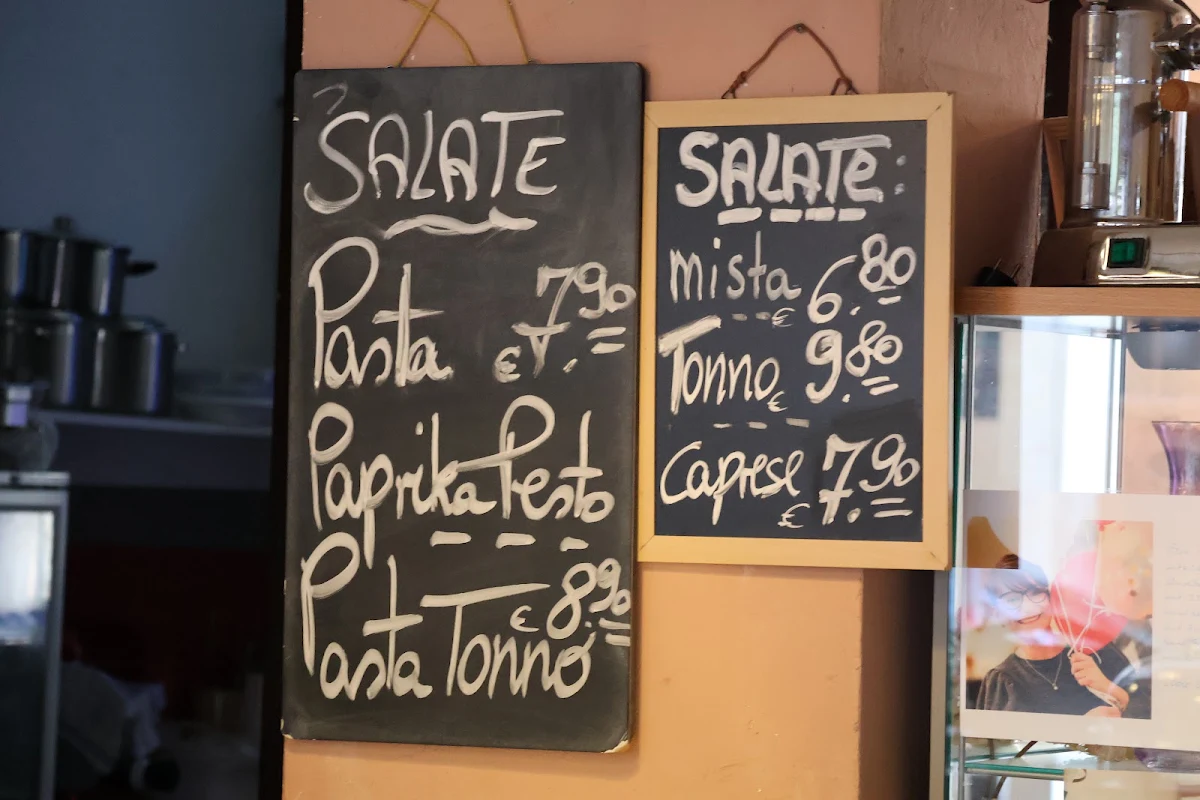 SALATE
Pasta € 7.90
Paprika Pesto
Pasta Tonno € 8.90
SALATE:
mista € 6.80
Tonno € 9.80
Caprese € 7.90